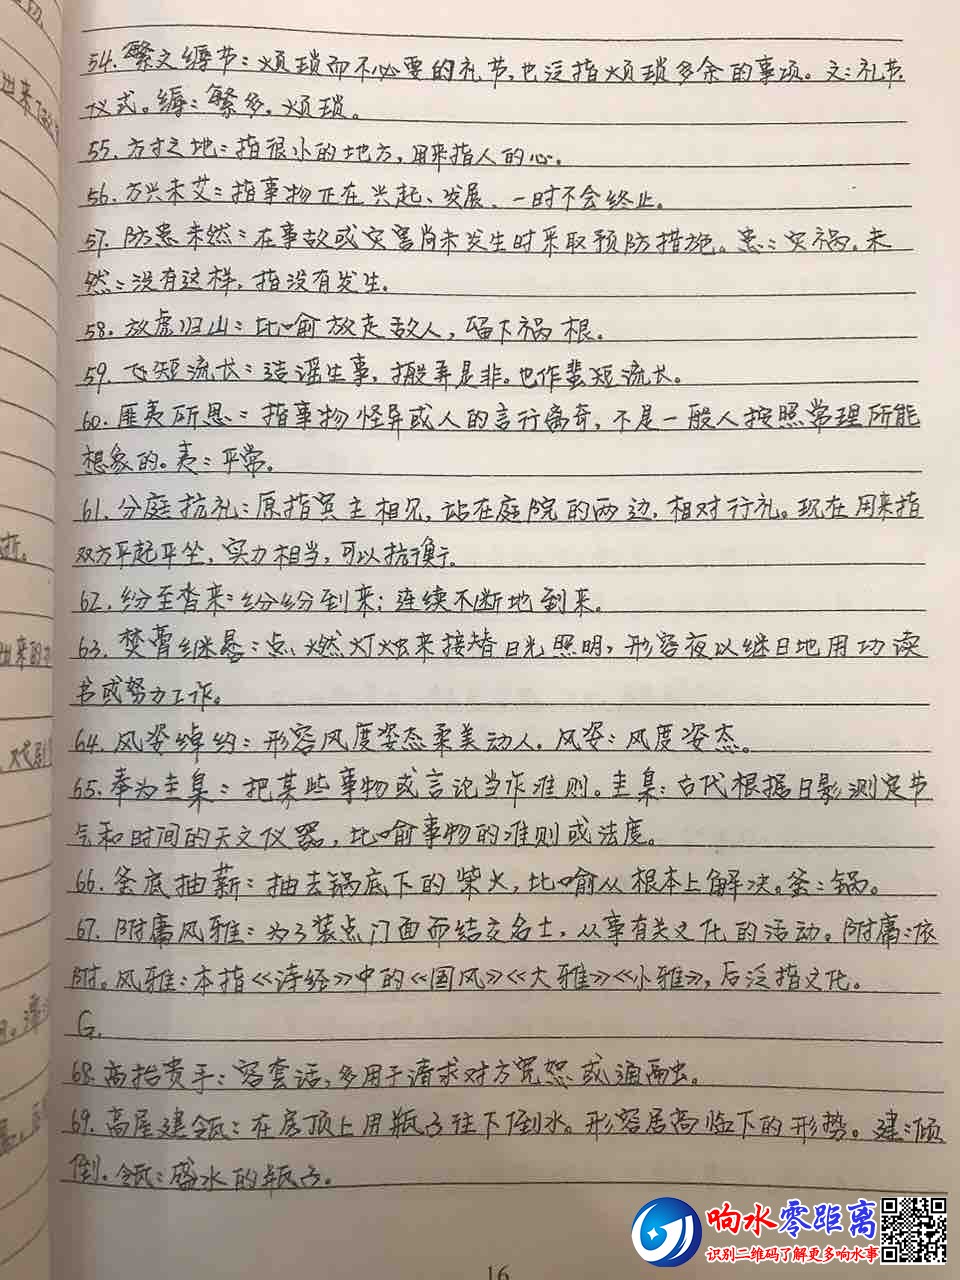 54. 繁文缛节：烦琐而不必要的礼节，也泛指烦琐多余的事项。文：礼节
仪式。缛：繁多，烦琐。
55. 方寸之地：指很小的地方，用来指人的心。
56. 方兴未艾：指事物正在兴起、发展，一时不会终止。
57. 防患未然：在事故或灾害尚未发生时采取预防措施。患：灾祸。未
然：没有这样，指没有发生。
58. 放虎归山：比喻放走敌人，留下祸根。
59. 飞短流长：造谣生事，搬弄是非。也作蜚短流长。
60. 匪夷所思：指事物怪异或人的言行离奇，不是一般人按照常理所能
想象的。夷：平常。
61. 分庭抗礼：原指宾主相见，站在庭院的两边，相对行礼。现在用来指
双方平起平坐，实力相当，可以抗衡。
62. 纷至沓来：纷纷到来；连续不断地到来。
63. 焚膏继晷：点燃灯烛来接替日光照明，形容夜以继日地用功读
书或努力工作。
64. 风姿绰约：形容风度姿态柔美动人。风姿：风度姿态。
65. 奉为圭臬：把某些事物或言论当作准则。圭臬：古代根据日影测定节
气和时间的天文仪器，比喻事物的准则或法度。
66. 釜底抽薪：抽去锅底下的柴火，比喻从根本上解决。釜：锅。
67. 附庸风雅：为了装点门面而结交名士，从事有关文化的活动。附庸：依
附。风雅：本指《诗经》中的《国风》《大雅》《小雅》，后泛指文化。
G.
68. 高抬贵手：客套话，多用于请求对方宽恕或通融。
69. 高屋建瓴：在房顶上用瓶子往下倒水。形容居高临下的形势。建：倾
倒。瓴：盛水的瓶子。
16
响水零距离
识别二维码了解更多响水事